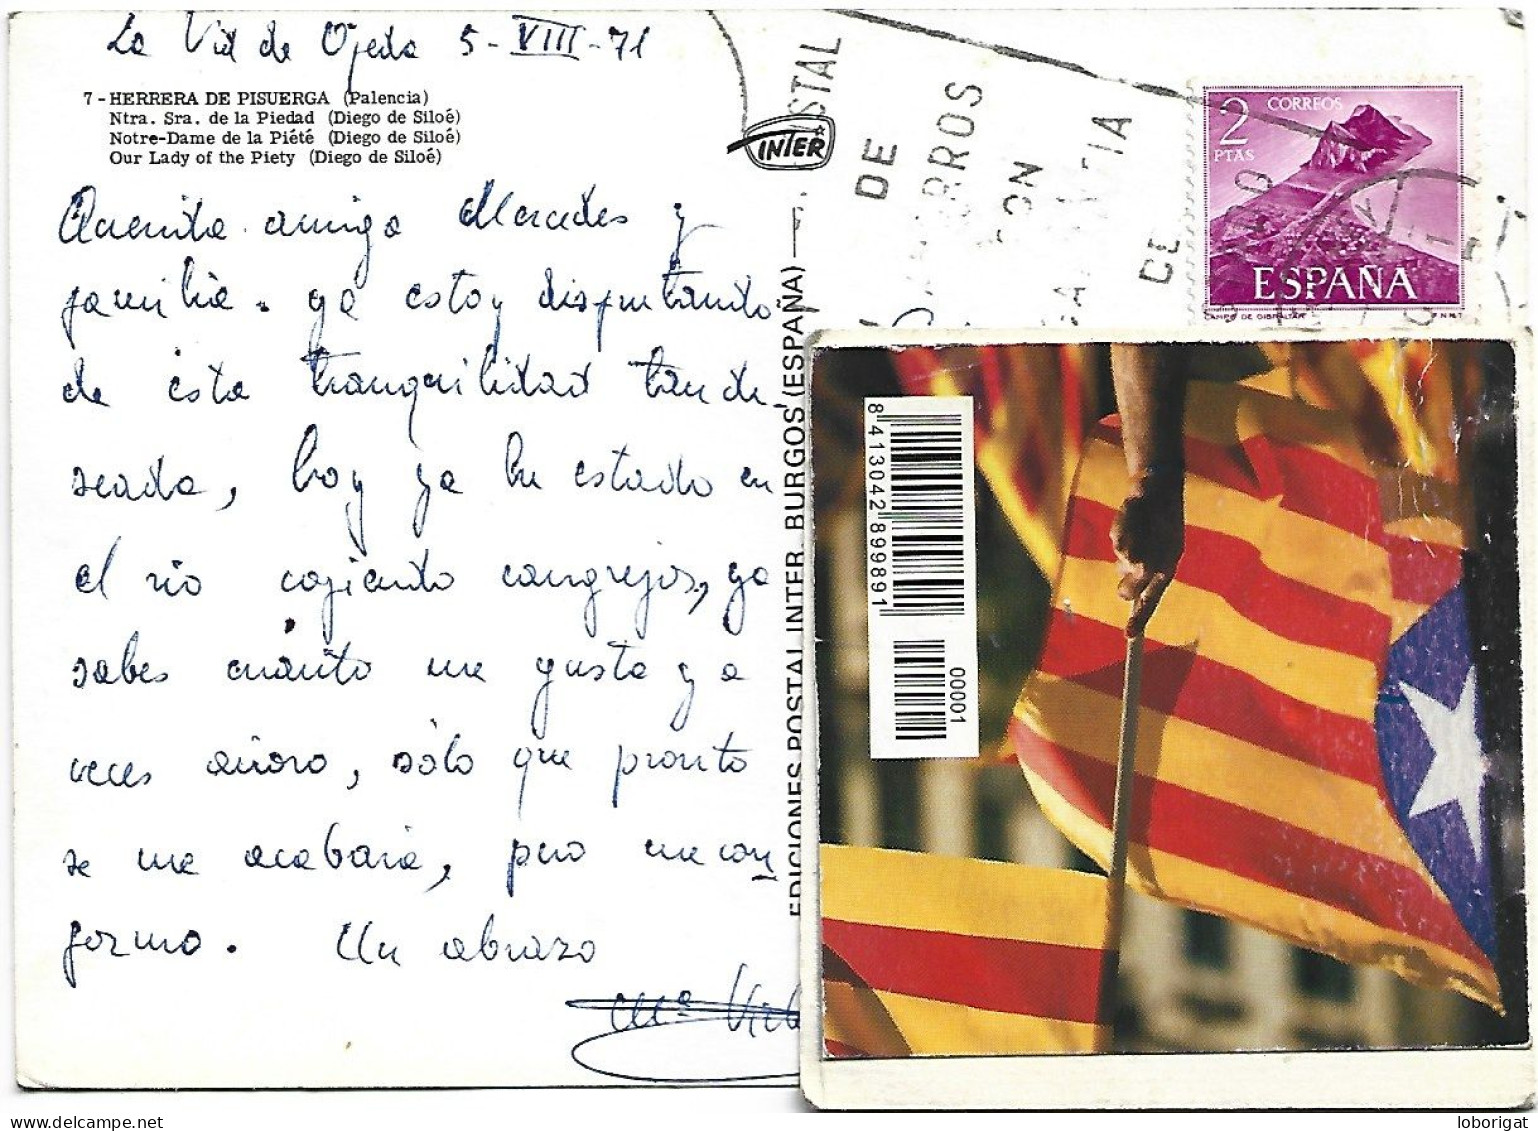 La Vid de Ojeda 5-VIII-71
7 - HERRERA DE PISUERGA (Palencia)
Ntra. Sra. de la Piedad (Diego de Siloé)
Notre-Dame de la Piété (Diego de Siloé)
Our Lady of the Piety (Diego de Siloé)
Querida amiga Mercedes y
familia. ya estoy disfrutando
de esta tranquilidad tan de-
seada, hoy ya he estado en
el rio cogiendo cangrejos, ya
sabes cuánto me gusta y a
veces añoro, sólo que pronto
se me acabará, pero me con
formo. Un abrazo
Mª
INTER
EDICIONES POSTAL INTER. BURGOS (ESPAÑA)
POSTAL
DE
CON
DE
2
PTAS
CORREOS
ESPAÑA
CAMPO DE GIBRALTAR
F.N.M.T
8 413042 899891
00001
loborigat